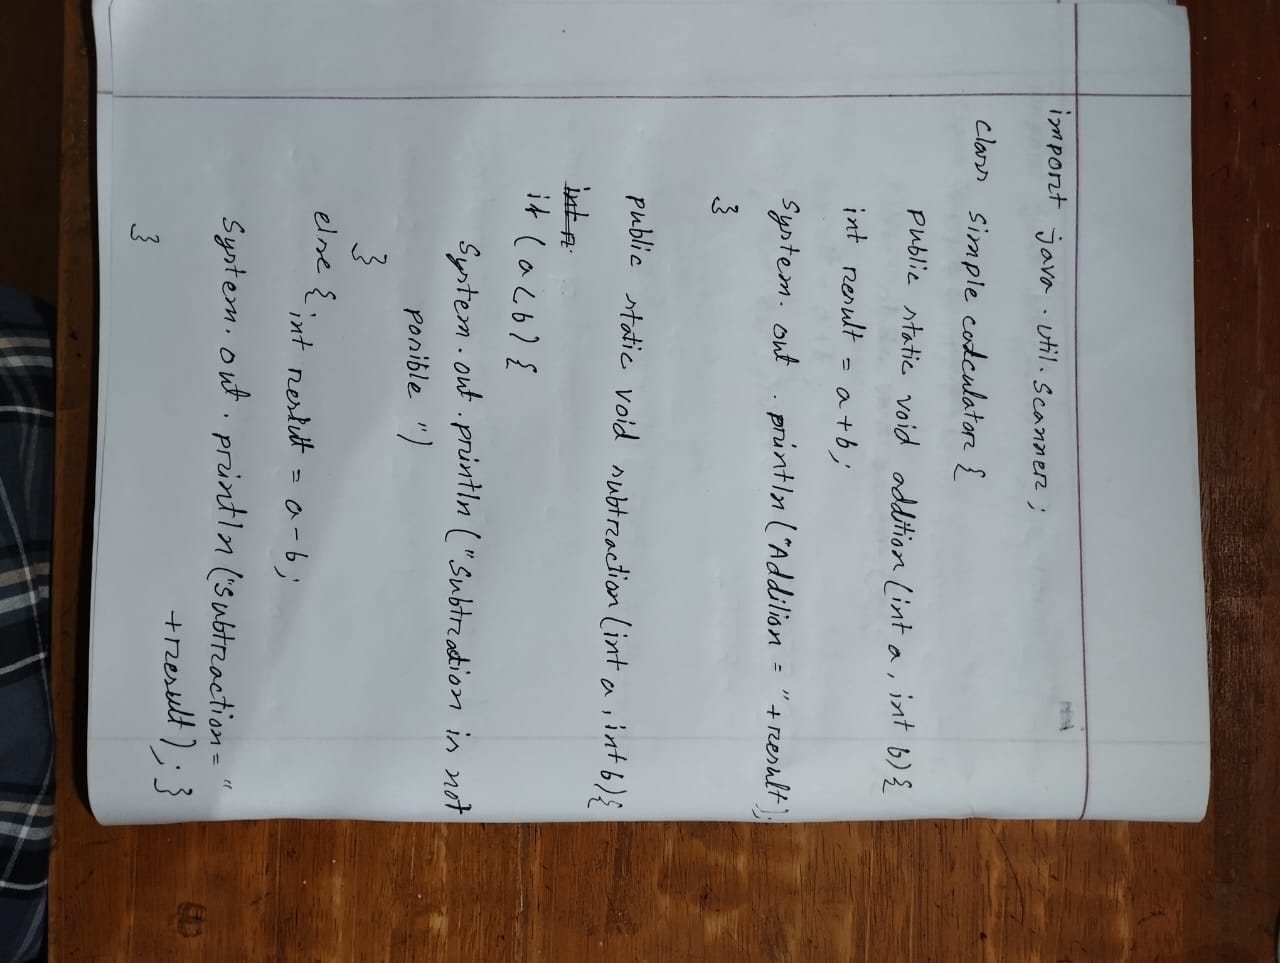 import java.util.Scanner;
class simple calculator {
public static void addition(int a, int b){
int result = a+b;
System.out.println("Addition = "+result);
}
public static void subtraction(int a, int b){
int r
if (a<b) {
System.out.println("Subtraction is not
possible")
}
else { int result = a-b;
System.out.println("Subtraction = "
+result); }
}